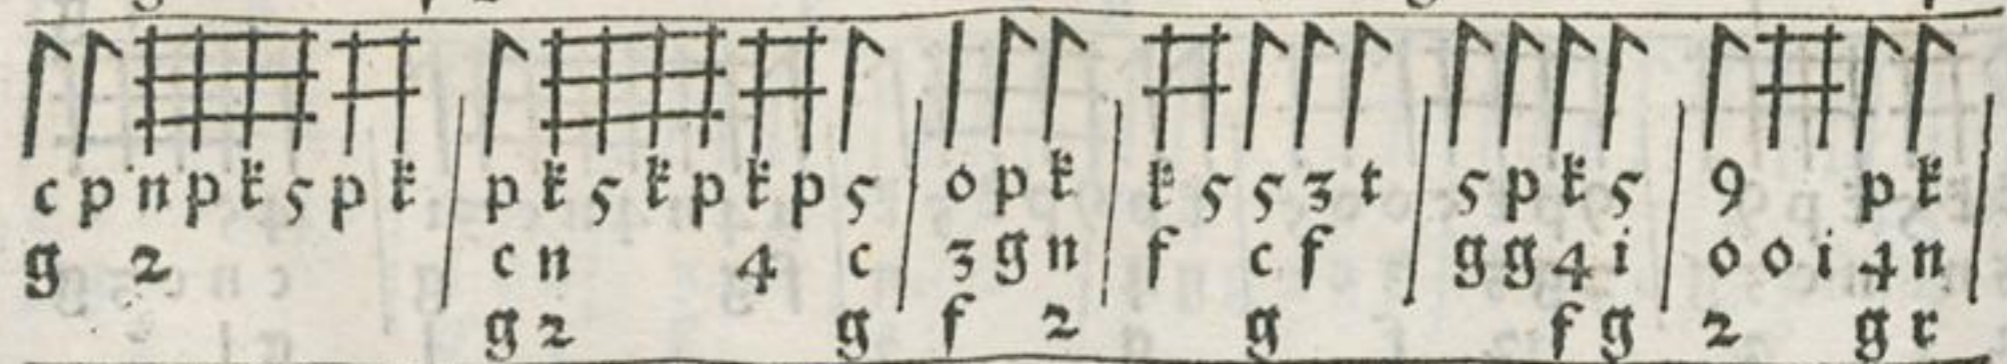 c p n p k 5 p k | p k 5 k p k p 5 | o p k | k 5 5 3 t | 5 p k 5 | 9 p k |
g 2 | c n 4 c | 3 g n | f c f | g g 4 i | o o i 4 n |
g 2 g | f 2 | g | f g | 2 g r